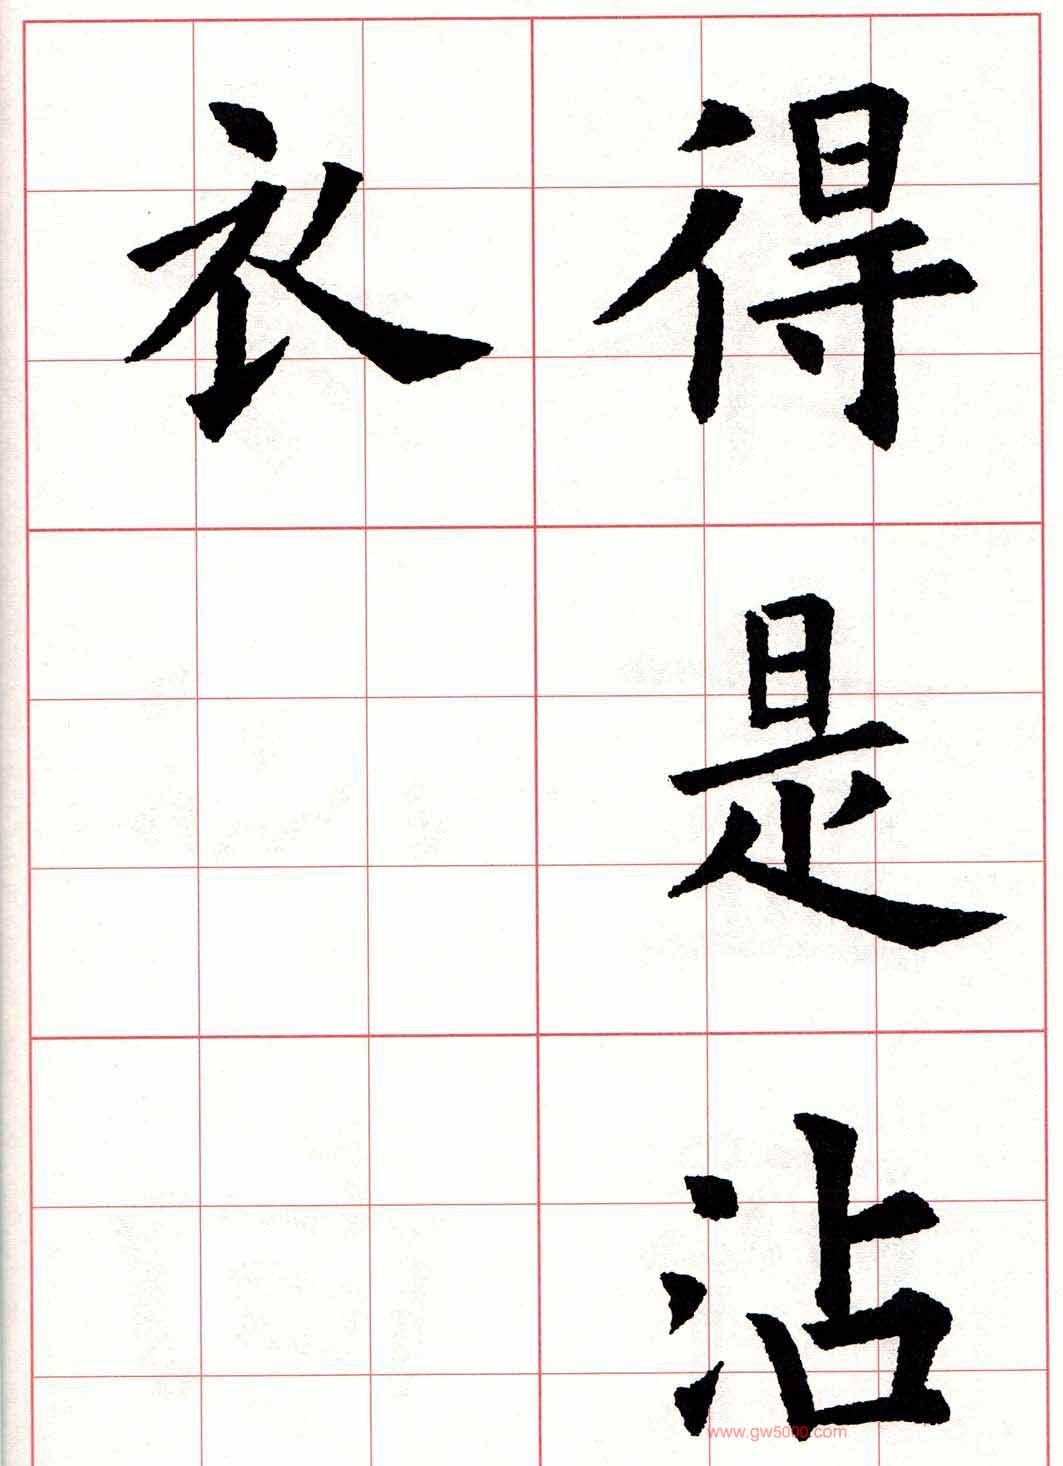 得是沾
衣
www.gw5000.com